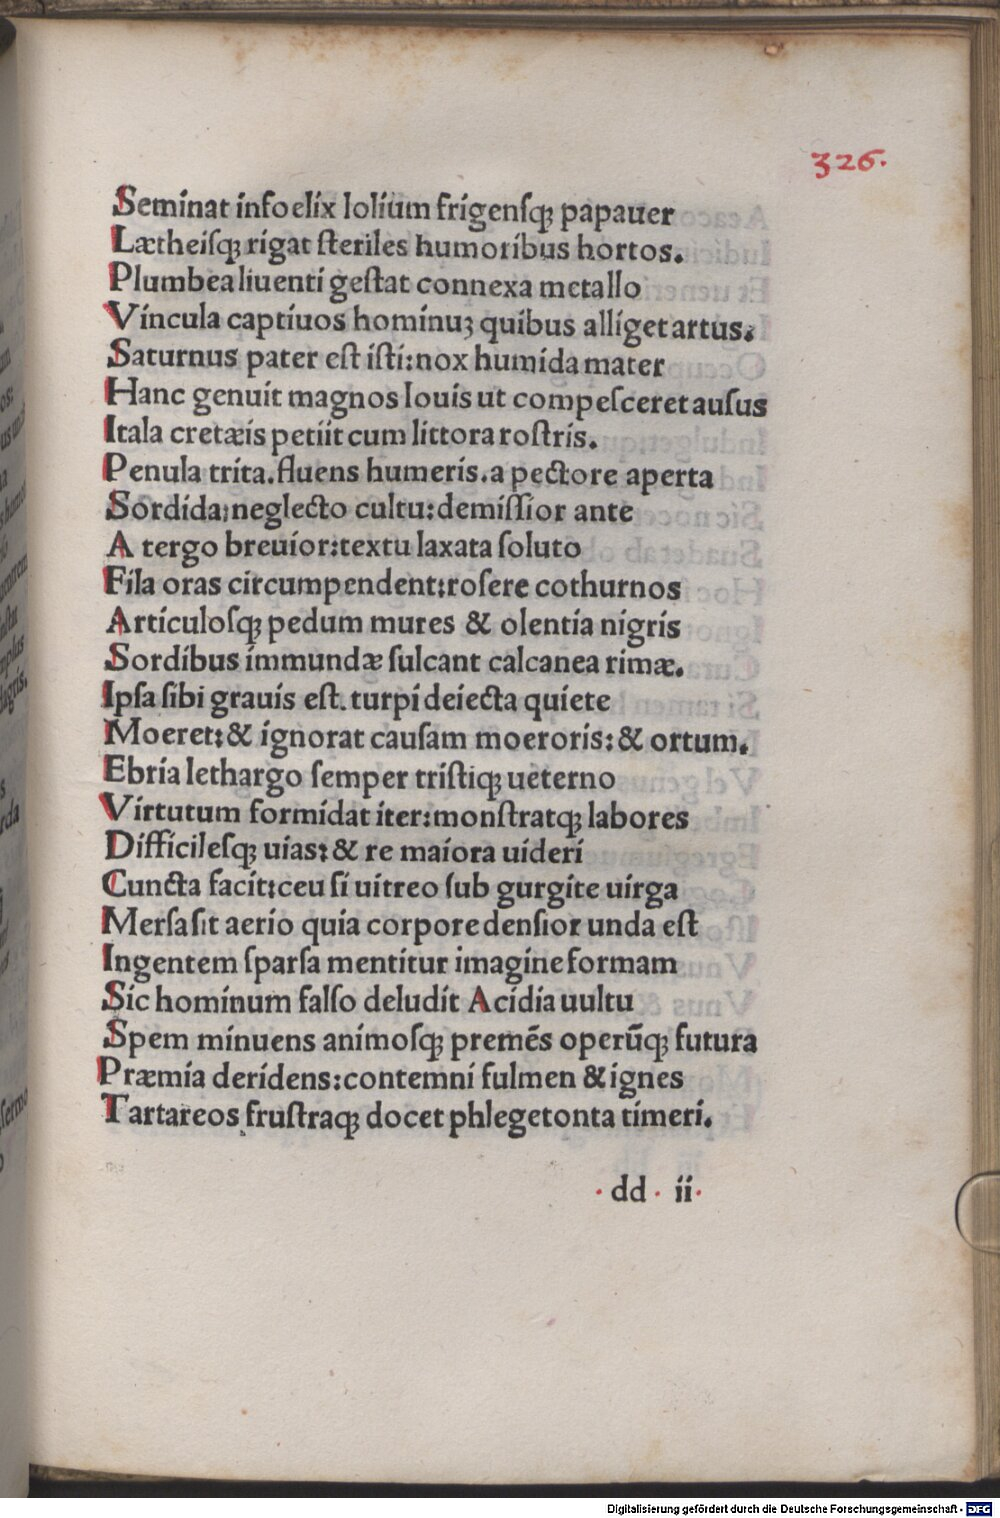 326.
Seminat infoelix lolium frigenſqꝫ papauer
Lætheiſqꝫ rigat ſteriles humoribus hortos.
Plumbea liuenti geſtat connexa metallo
Vincula captiuos hominuꝫ quibus alliget artus.
Saturnus pater eſt iſti: nox humida mater
Hanc genuit magnos Iouis ut compeſceret auſus
Itala cretæis petiit cum littora roſtris.
Penula trita. fluens humeris. a pectore aperta
Sordida; neglecto cultu: demiſſior ante
A tergo breuior: textu laxata ſoluto
Fila oras circumpendent: roſere cothurnos
Articuloſqꝫ pedum mures & olentia nigris
Sordibus immundæ ſulcant calcanea rimæ.
Ipſa ſibi grauis eſt. turpi deiecta quiete
Moeret: & ignorat cauſam moeroris: & ortum.
Ebria lethargo ſemper triſtiqꝫ ueterno
Virtutum formidat iter: monſtratqꝫ labores
Difficileſqꝫ uias: & re maiora uideri
Cuncta facit: ceu ſi uitreo ſub gurgite uirga
Merſa ſit aerio quia corpore denſior unda eſt
Ingentem ſparſa mentitur imagine formam
Sic hominum falſo deludit Acidia uultu
Spem minuens animoſqꝫ premēs operūqꝫ futura
Præmia deridens: contemni fulmen & ignes
Tartareos fruſtraqꝫ docet phlegetonta timeri.
· dd · ii·
Digitalisierung gefördert durch die Deutsche Forschungsgemeinschaft - DFG